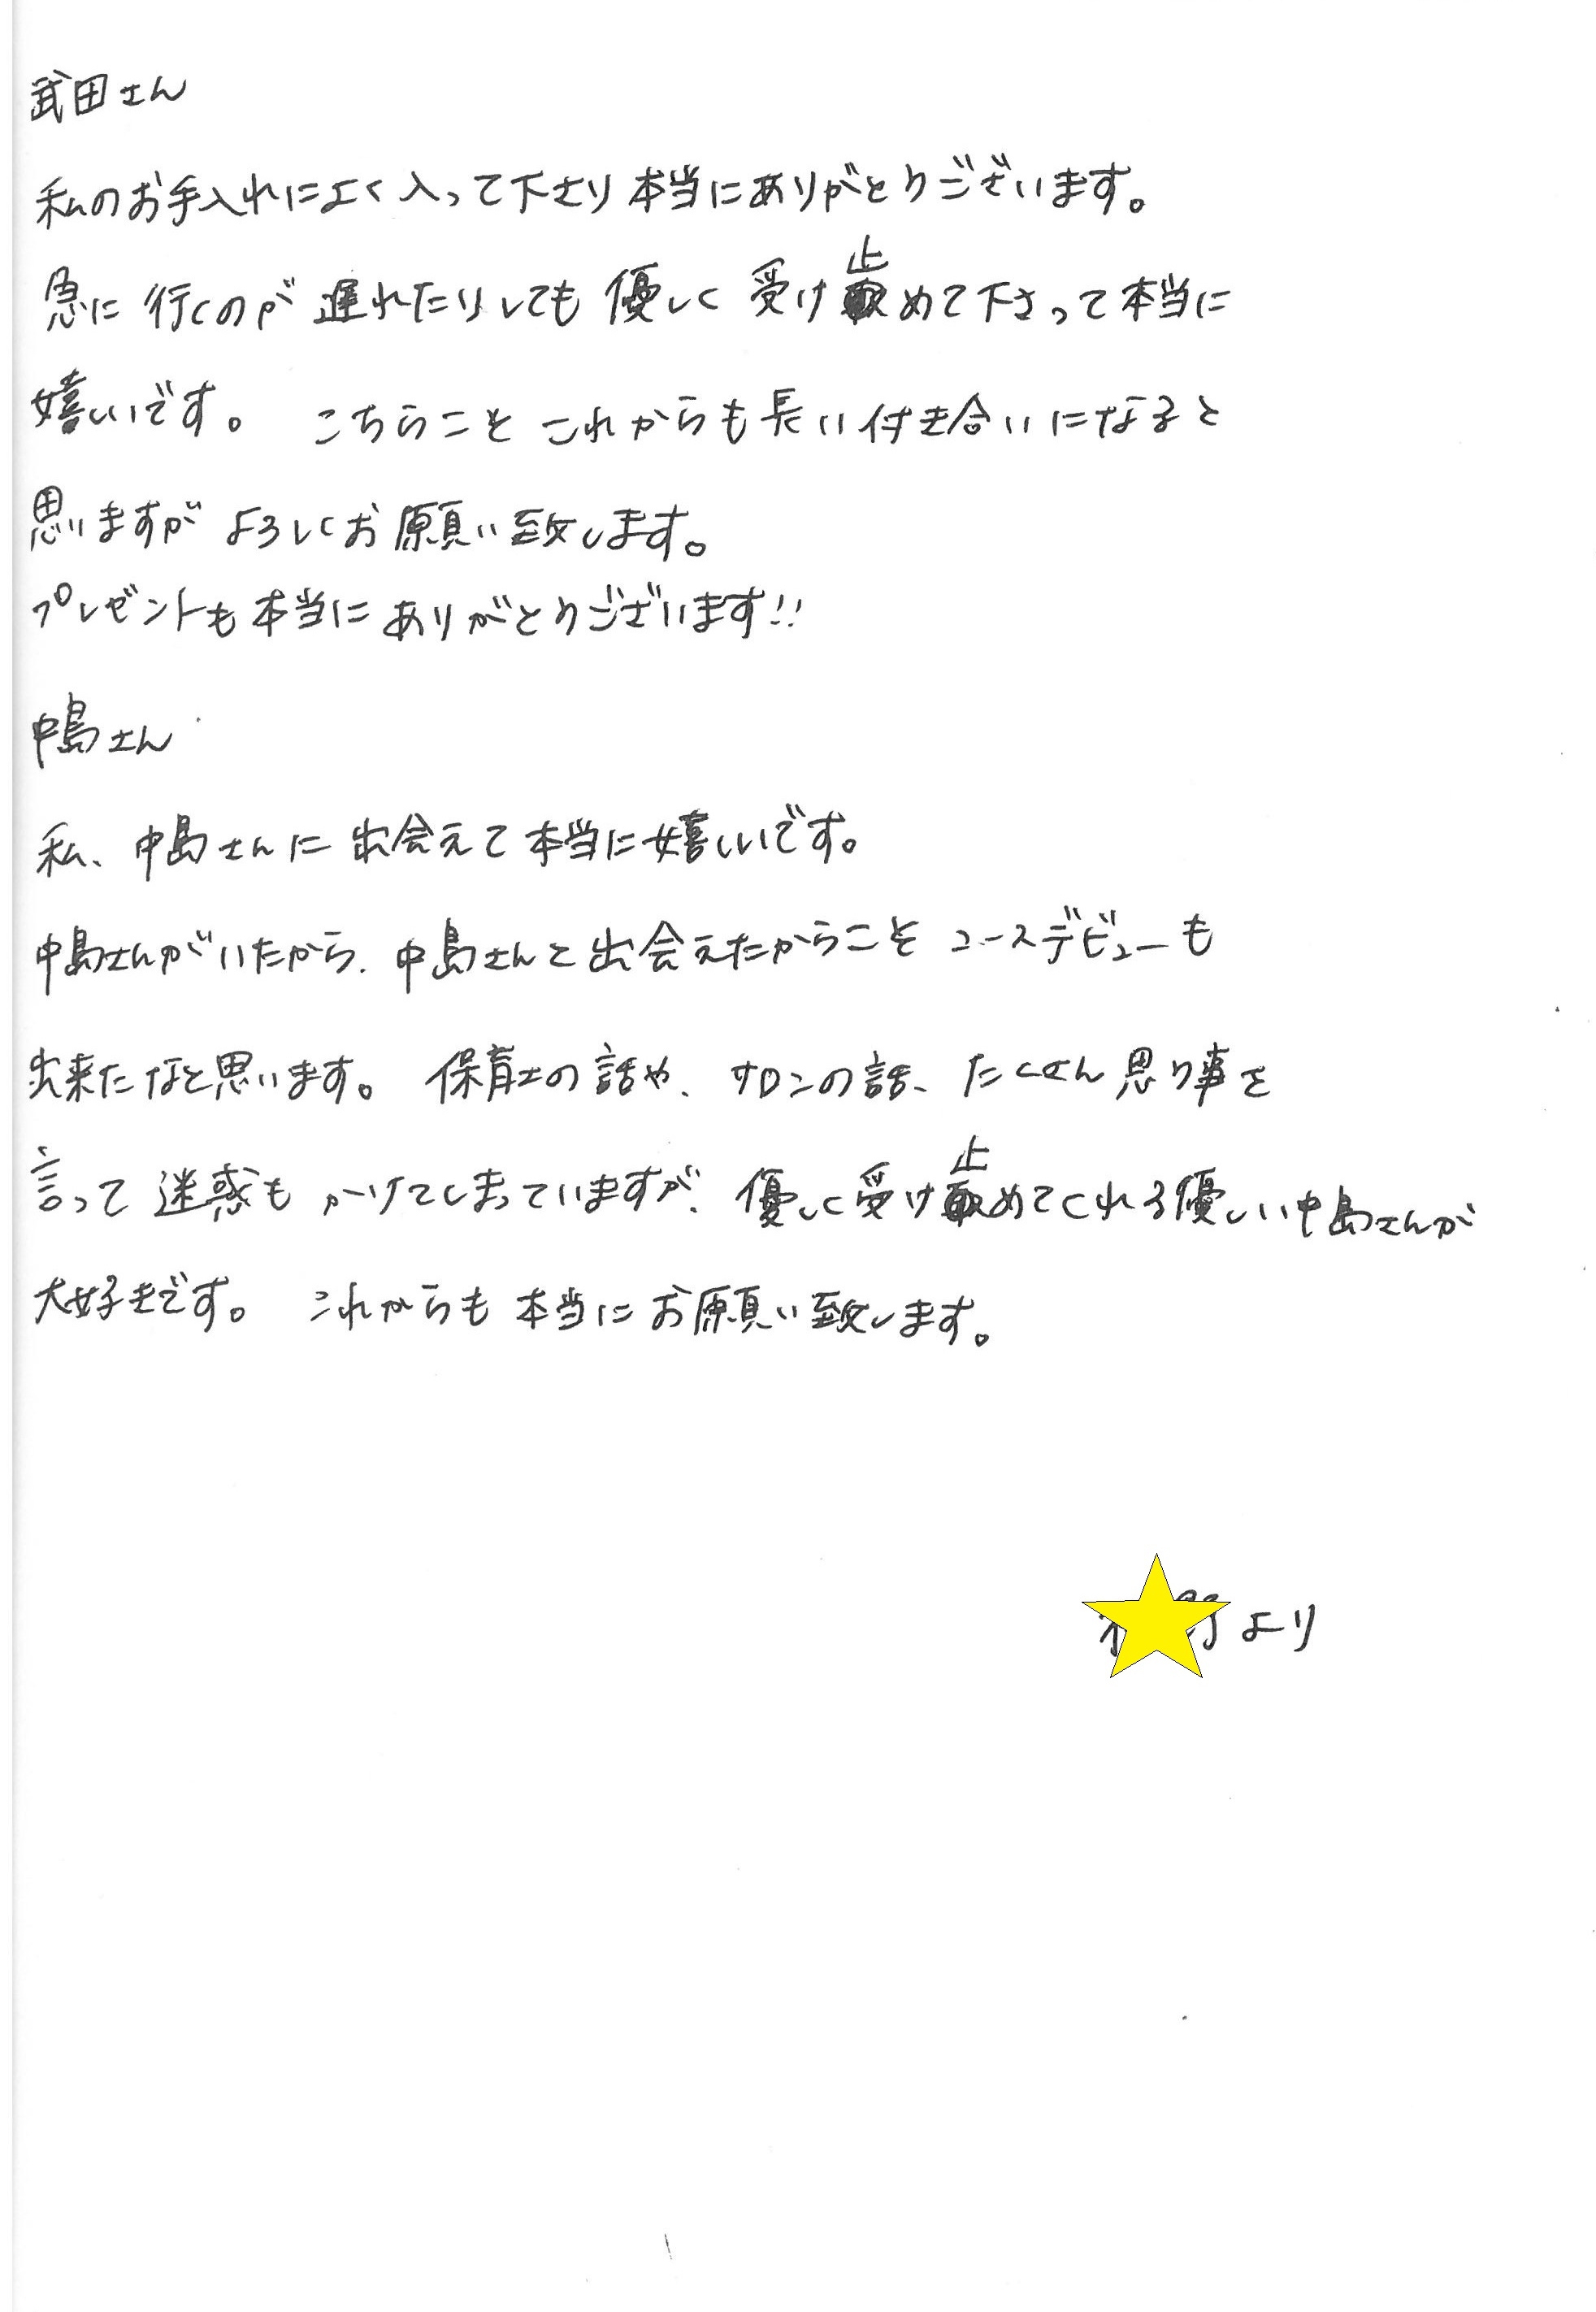 武田さん
私のお手入れによく入って下さり本当にありがとうございます。
急に行くのが遅れたりしても優しく受け止めて下さって本当に
嬉いです。 こちらこそこれからも長い付き合いになると
思いますがよろしくお願い致します。
プレゼントも本当にありがとうございます!!
中島さん
私、中島さんに出会えて本当に嬉しいです。
中島さんがいたから、中島さんと出会えたからこそコースデビューも
出来たなと思います。 保育士の話や、サロンの話、たくさん思う事を
言って迷惑もかけてしまっていますが、優しく受け止めてくれる優しい中島さんが
大好きです。 これからも本当にお願い致します。
より